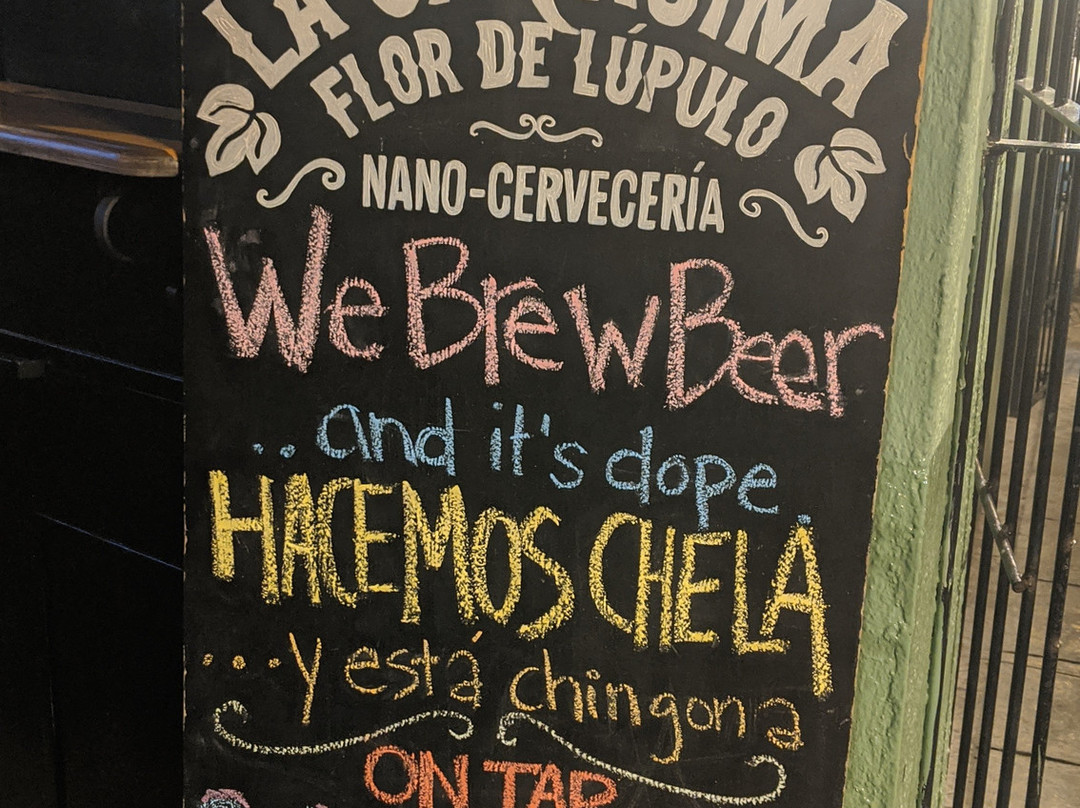 LA
FLOR DE LÚPULO
NANO-CERVECERÍA
We Brew Beer
..and it's dope.
HACEMOS CHELA
...y está chingona
ON TAP